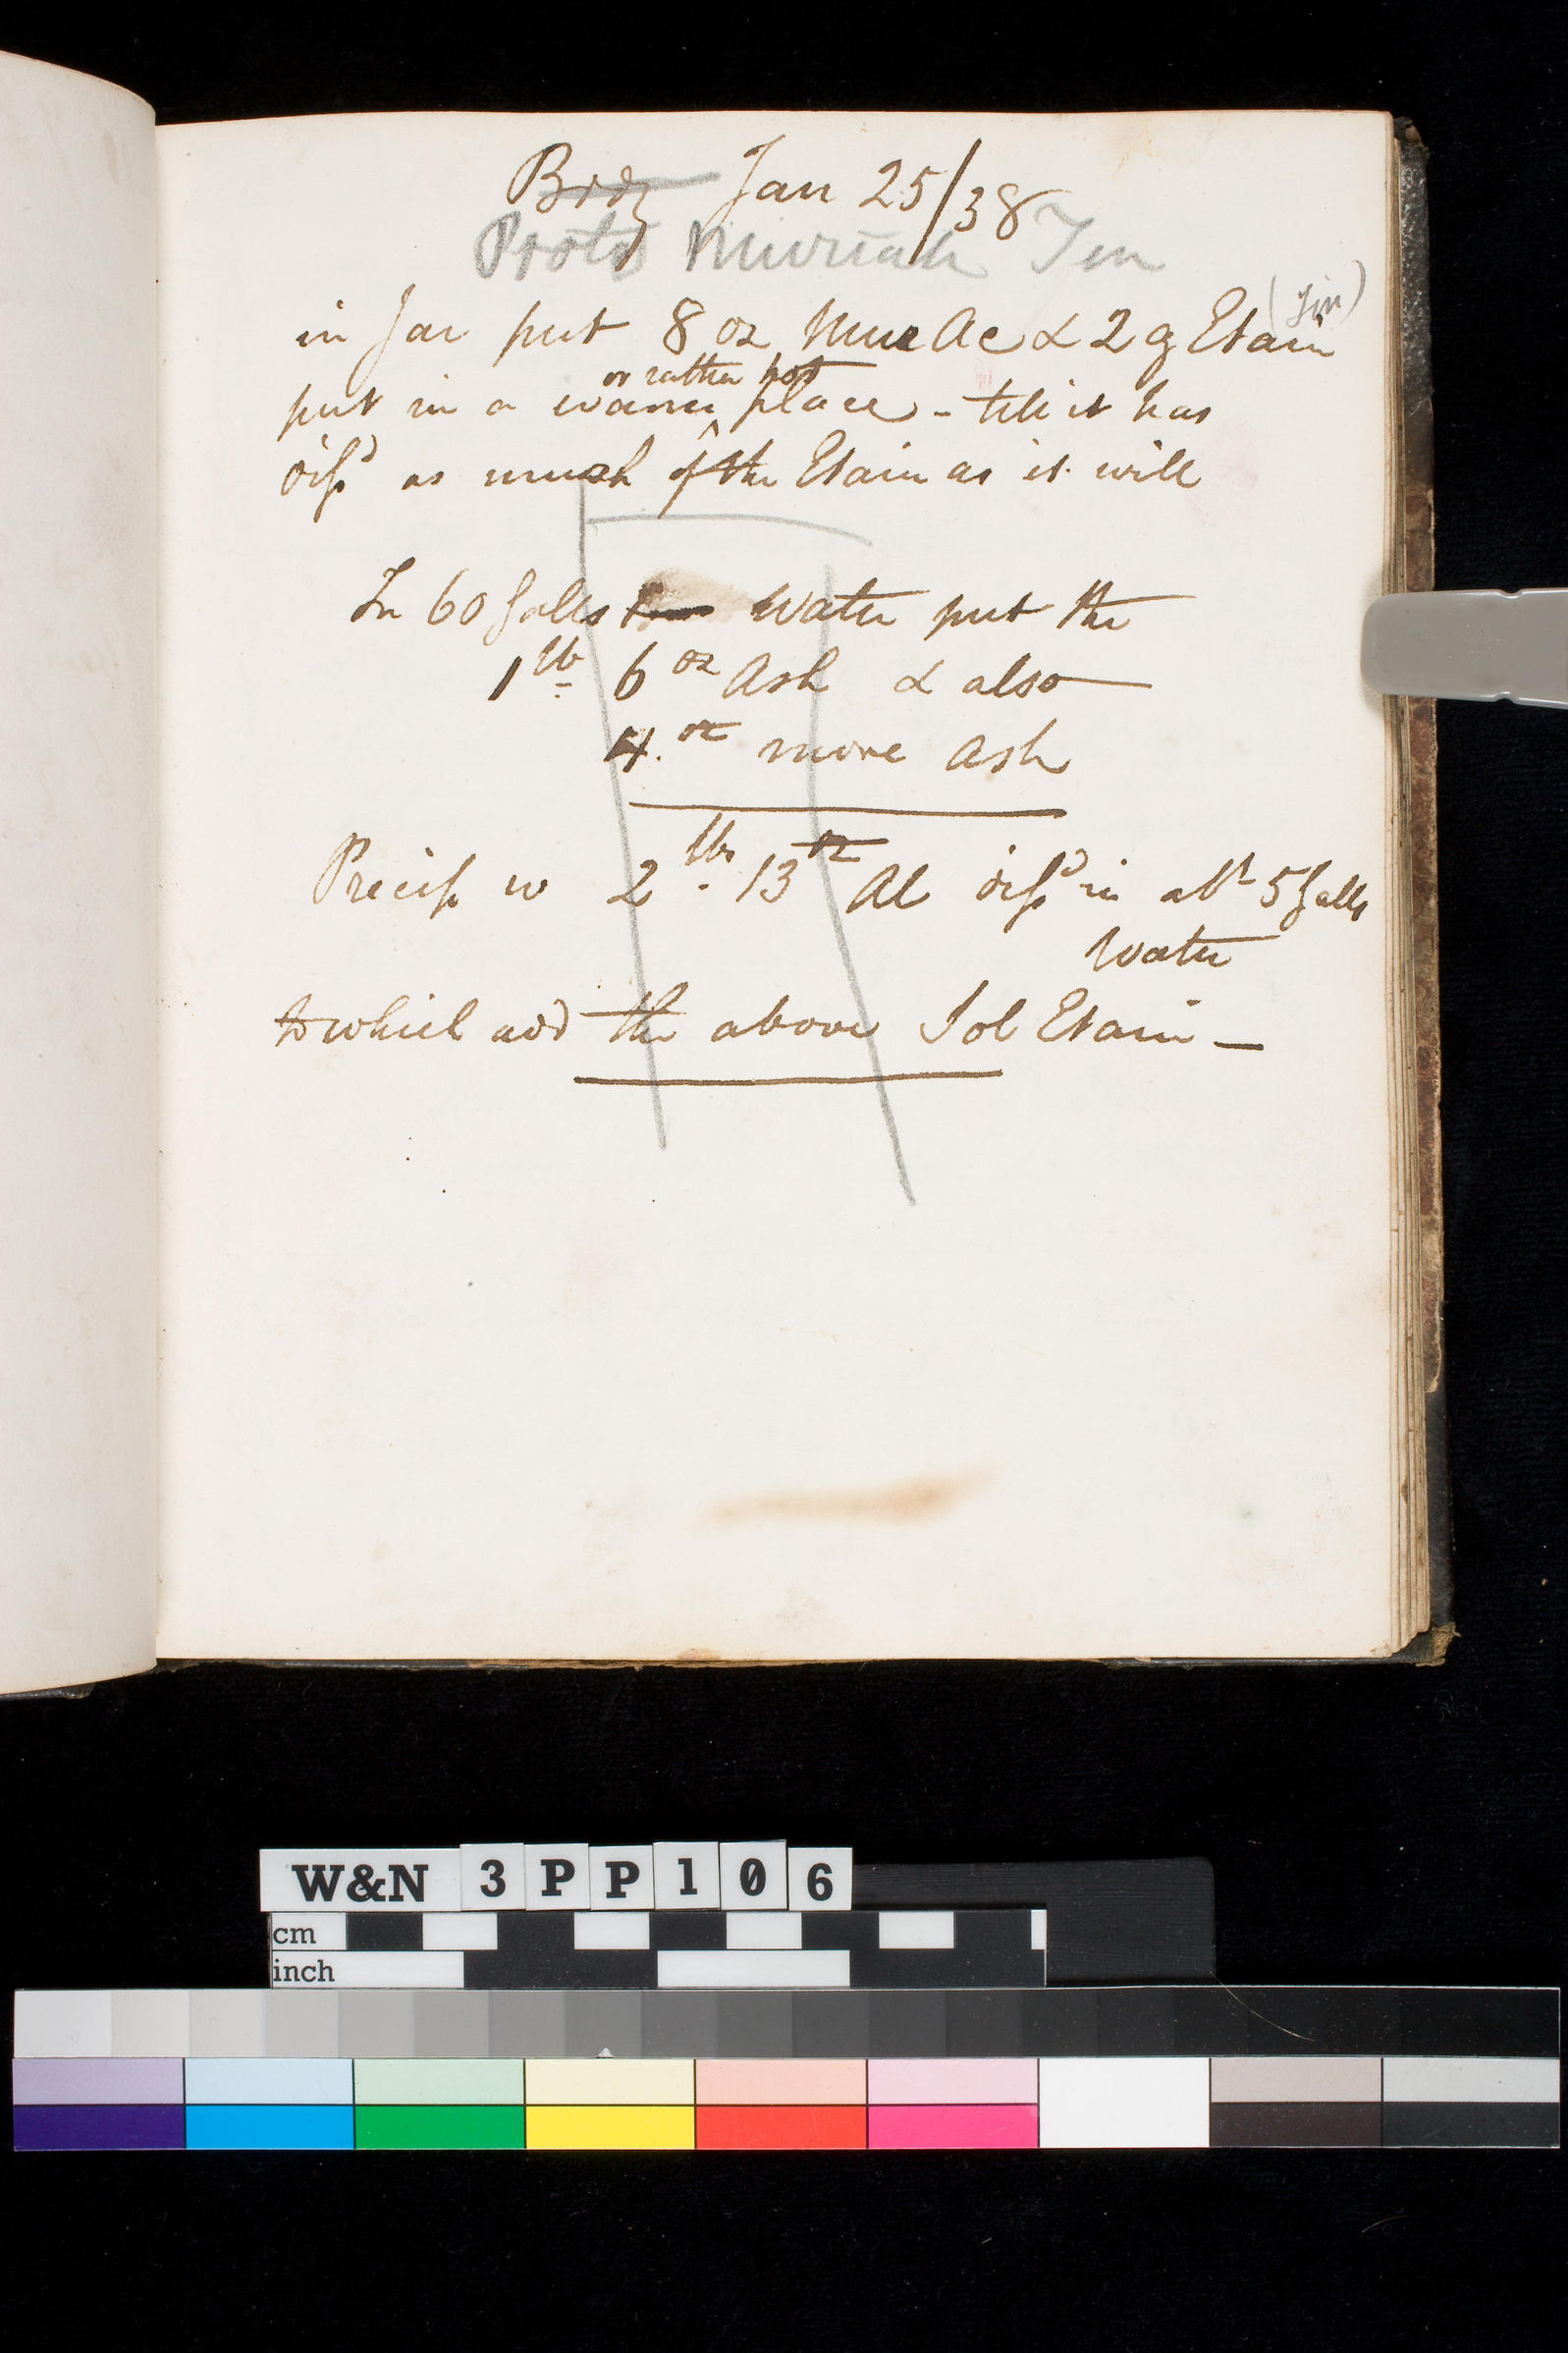 Brdg Jan 25/38
Proto Muriate Tin
(Tin)
in Jar put 8 oz Mur Ac & 2 g Etain
or rather hot
put in a warm place - till it has
dissd as much of the Etain as it will
In 60 Galls Water put the
1 lb 6 oz Ash & also
4. oz more Ash
Precip w 2 lbs. 13 oz Al dissd in abt 5 Galls
Water
to which add the above Sol Etain —
W&N 3PP106
cm
inch